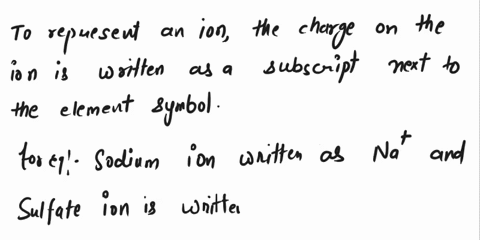 To represent an ion, the charge on the
ion is written as a subscript next to
the element symbol.
for eg:- Sodium ion written as Na⁺ and
Sulfate ion is writte